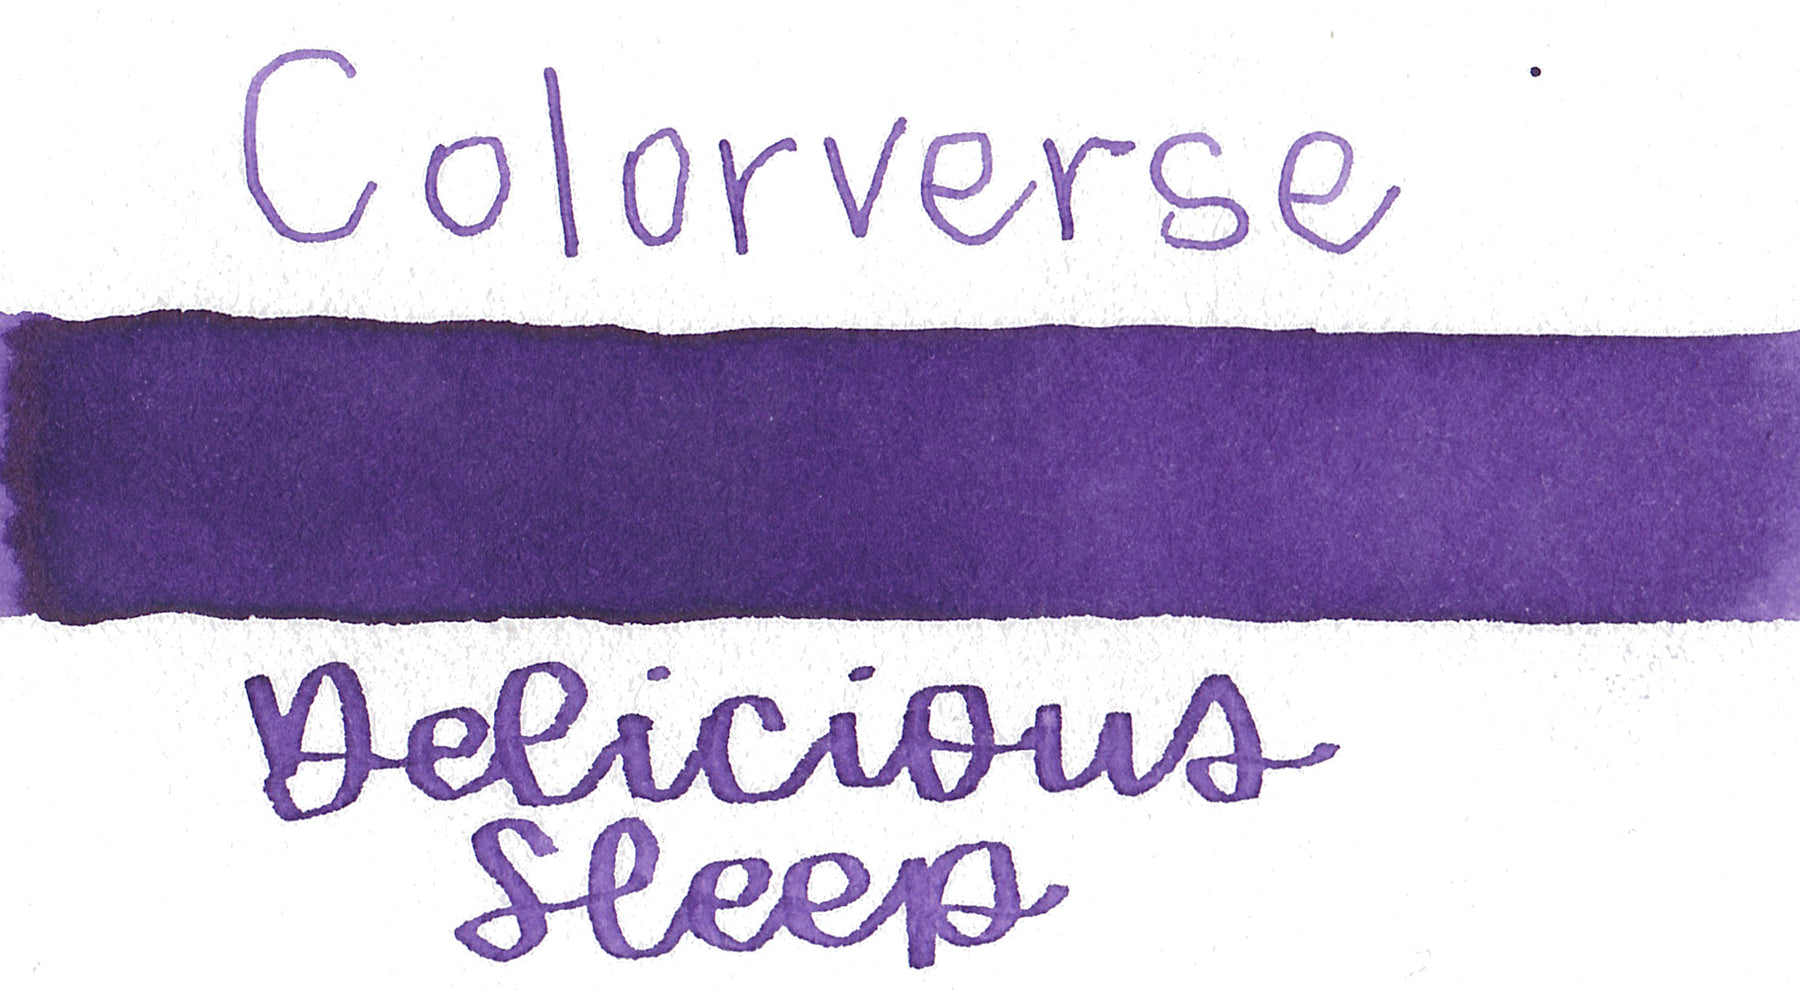 Colorverse
Delicious
Sleep